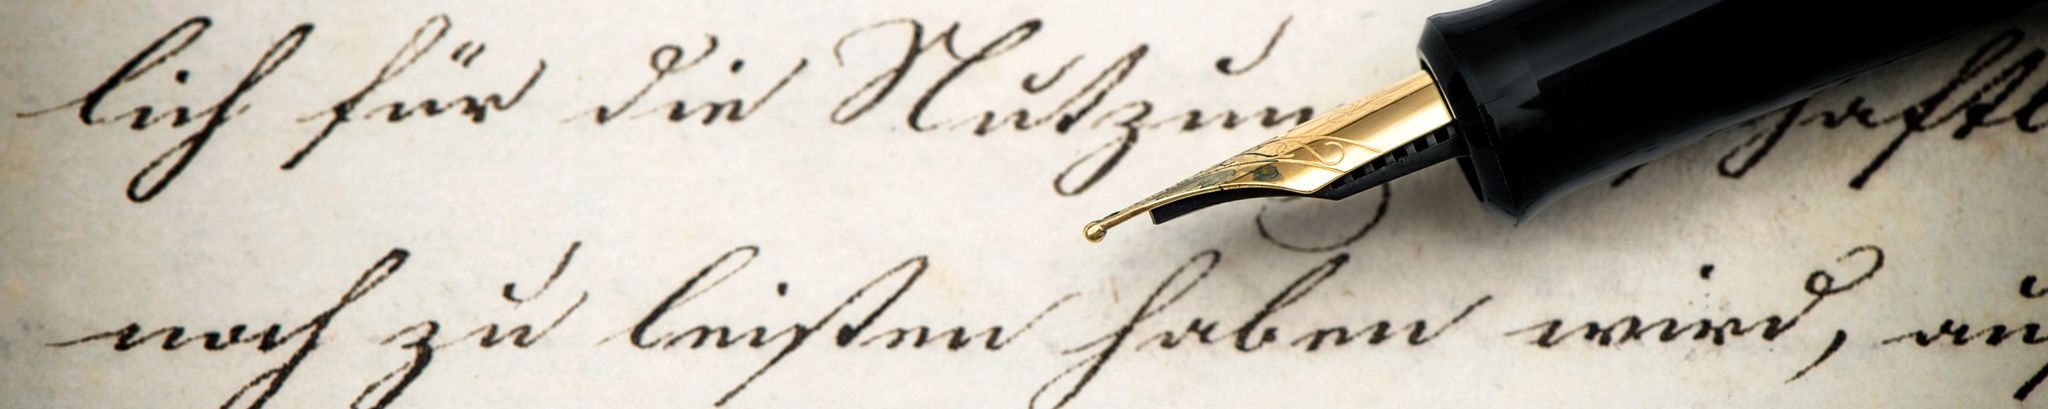 lich für die Nutzung
noch zu leisten haben wird,